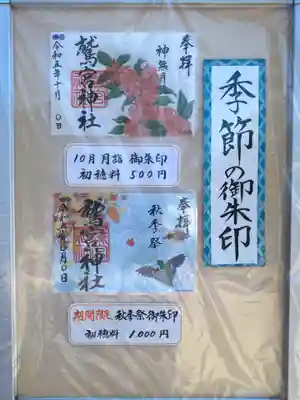 季節の御朱印
奉拝
神無月
鷲宮神社
令和五年十月 0日
10月月詣 御朱印
初穂料 500円
奉拝
秋季祭
鷲宮神社
期間限定 秋季祭御朱印
初穂料 1,000円